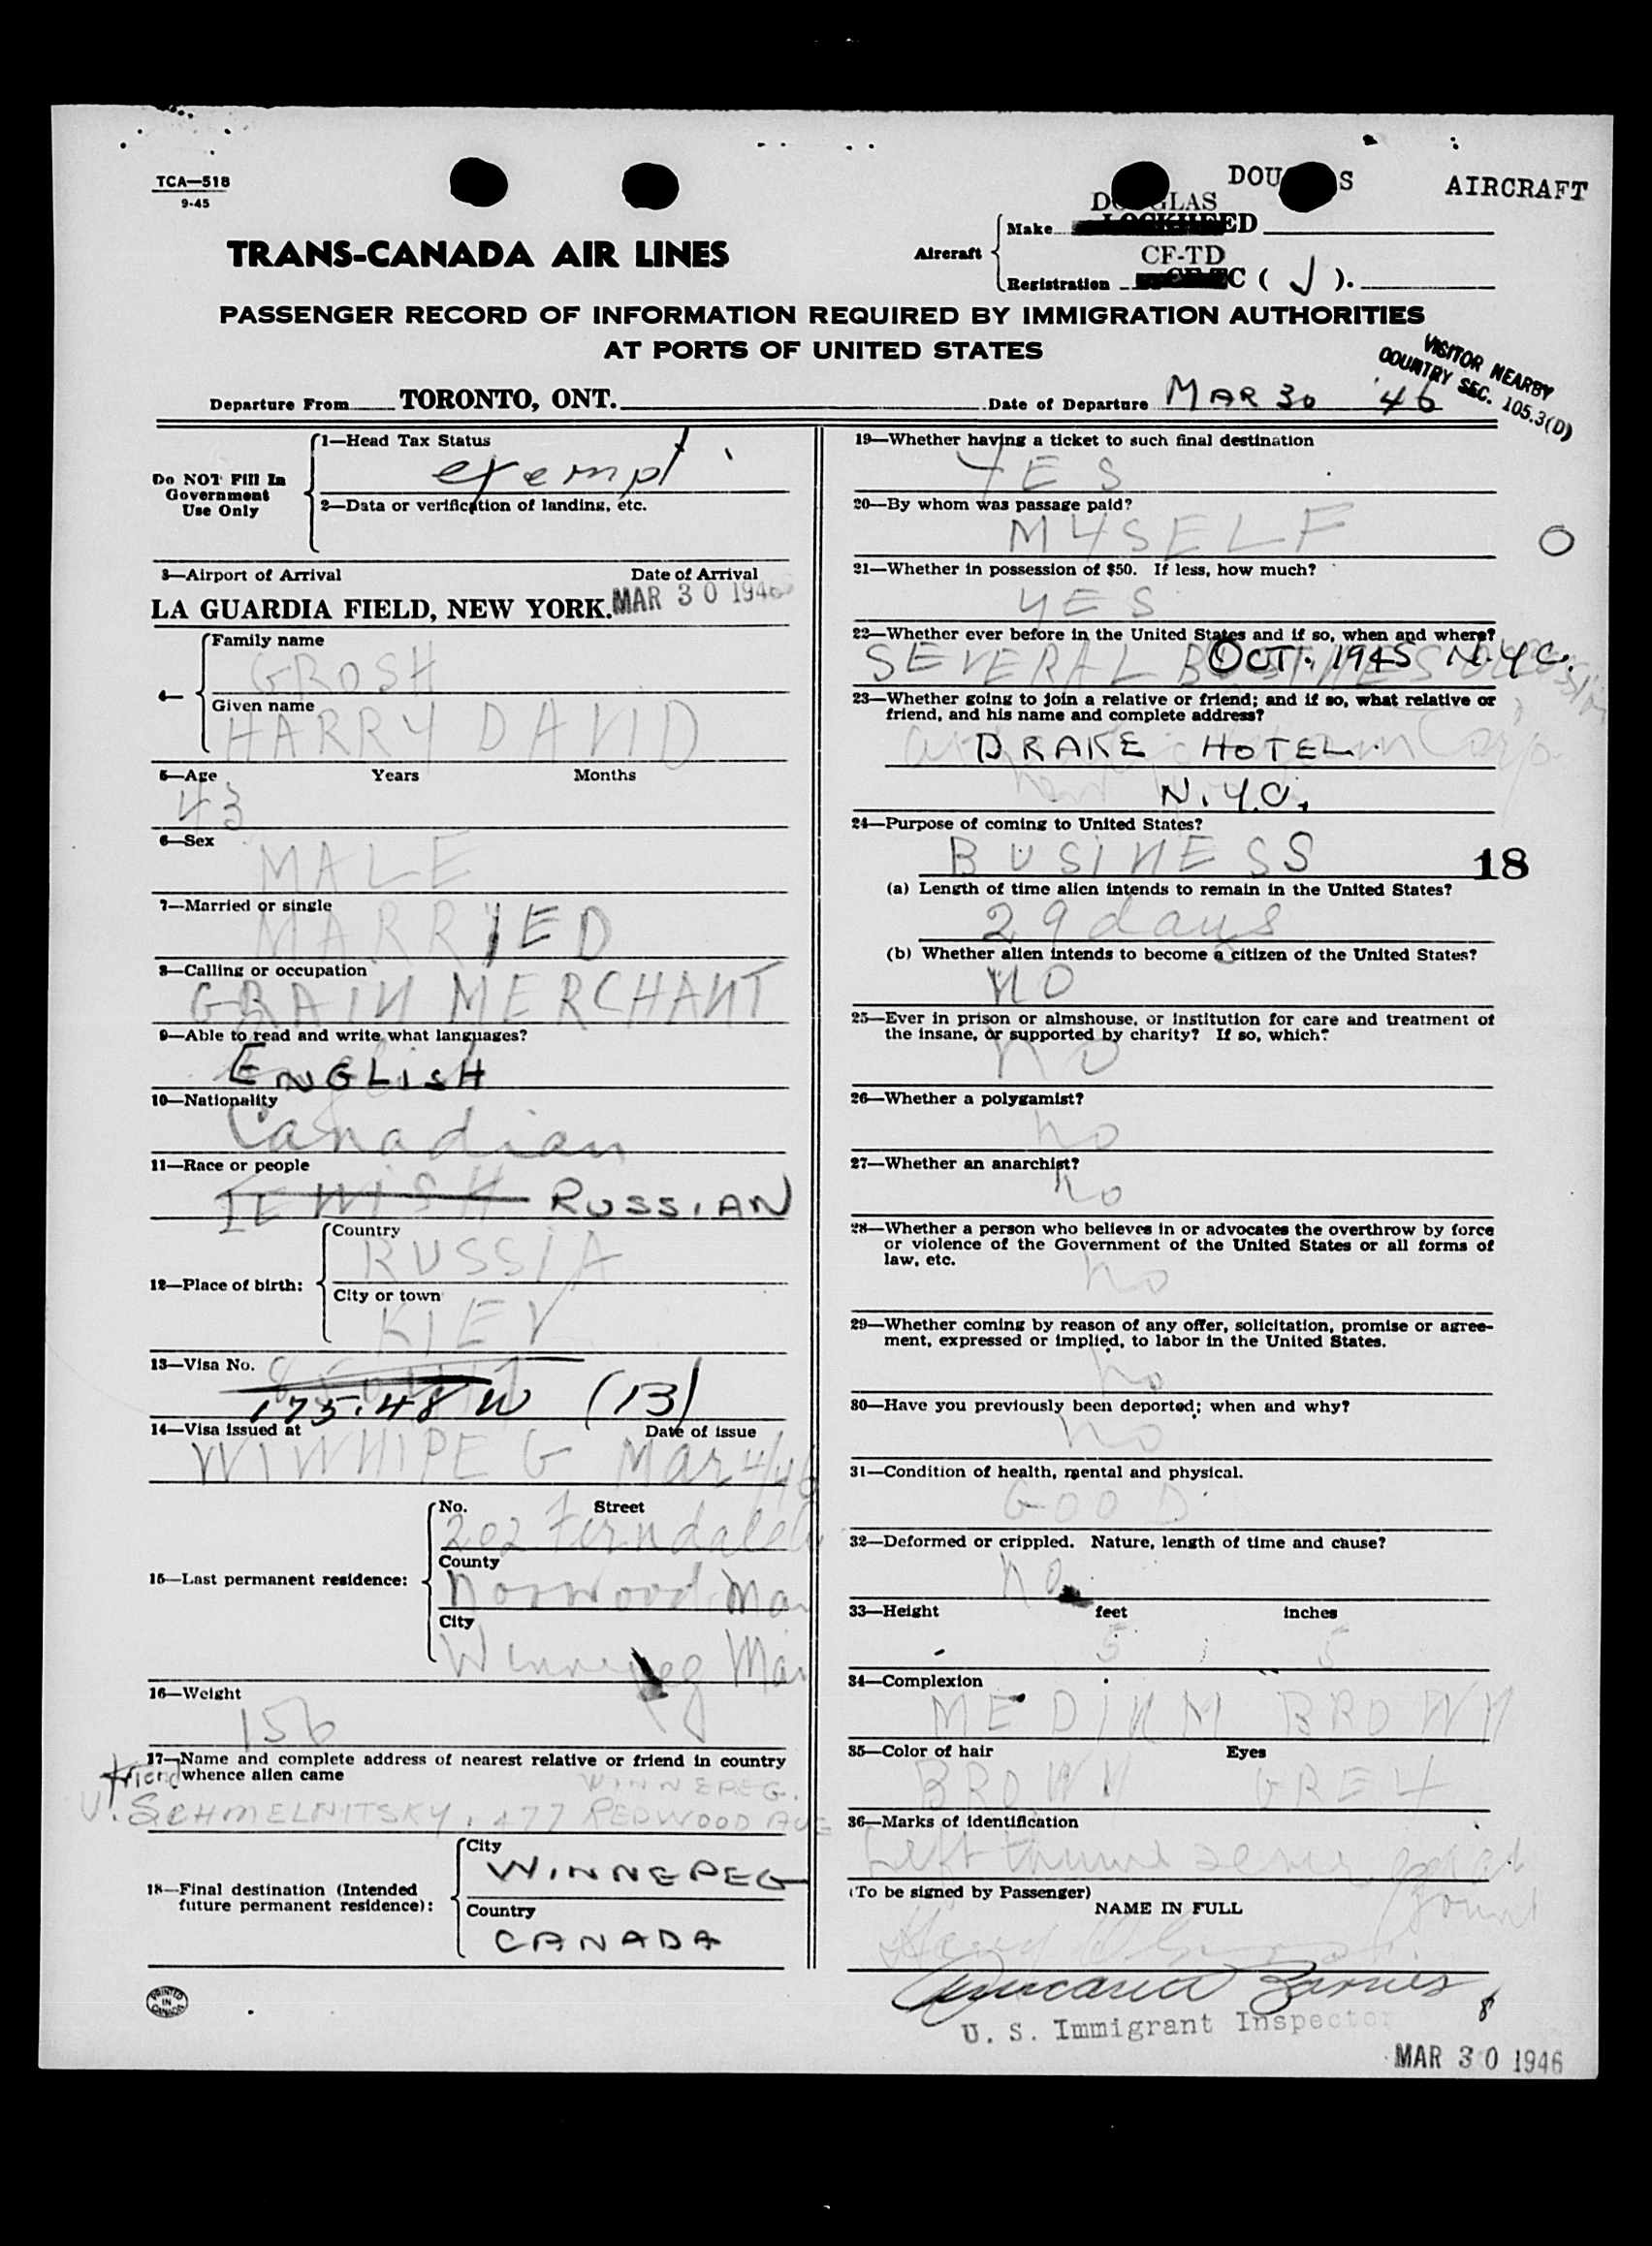 TCA—518
9-45
DOUGLAS AIRCRAFT
TRANS-CANADA AIR LINES
Aircraft
DOUGLAS
Make LOCKHEED
CF-TD
Registration CF-TC ( J ).
PASSENGER RECORD OF INFORMATION REQUIRED BY IMMIGRATION AUTHORITIES
AT PORTS OF UNITED STATES
VISITOR NEARBY
COUNTRY SEC. 105.3(D)
Departure From TORONTO, ONT. Date of Departure MAR 30 '46
Do NOT Fill In
Government
Use Only
1—Head Tax Status
exempt
2—Data or verification of landing, etc.
3—Airport of Arrival Date of Arrival
LA GUARDIA FIELD, NEW YORK. MAR 30 1946
4—
Family name
GROSH
Given name
HARRY DAVID
5—Age Years Months
43
6—Sex
MALE
7—Married or single
MARRIED
8—Calling or occupation
GRAIN MERCHANT
9—Able to read and write what languages?
ENGLISH
10—Nationality
Canadian
11—Race or people
JEWISH RUSSIAN
12—Place of birth:
Country
RUSSIA
City or town
KIEV
13—Visa No.
175.48 W (13)
14—Visa issued at Date of issue
WINNIPEG Mar 4/46
15—Last permanent residence:
No. Street
202 Ferndale
County
Norwood Man
City
Winnipeg Man
16—Weight
156
17—Name and complete address of nearest relative or friend in country
whence alien came
friend
WINNEPEG.
V. SCHMELNITSKY, 477 REDWOOD AVE
18—Final destination (Intended
future permanent residence):
City
WINNEPEG
Country
CANADA
PRINTED
IN
CANADA
19—Whether having a ticket to such final destination
YES
20—By whom was passage paid?
MYSELF
O
21—Whether in possession of $50. If less, how much?
YES
22—Whether ever before in the United States and if so, when and where?
SEVERAL BUSINESS
OCT. 1945 N.Y.C.
23—Whether going to join a relative or friend; and if so, what relative or
friend, and his name and complete address?
DRAKE HOTEL.
N.Y.C.
24—Purpose of coming to United States?
BUSINESS
18
(a) Length of time alien intends to remain in the United States?
29 days
(b) Whether alien intends to become a citizen of the United States?
NO
25—Ever in prison or almshouse, or institution for care and treatment of
the insane, or supported by charity? If so, which?
NO
26—Whether a polygamist?
no
27—Whether an anarchist?
no
28—Whether a person who believes in or advocates the overthrow by force
or violence of the Government of the United States or all forms of
law, etc.
no
29—Whether coming by reason of any offer, solicitation, promise or agree-
ment, expressed or implied, to labor in the United States.
no
30—Have you previously been deported; when and why?
no
31—Condition of health, mental and physical.
GOOD
32—Deformed or crippled. Nature, length of time and cause?
no
33—Height feet inches
5 5
34—Complexion
MEDIUM BROWN
35—Color of hair Eyes
BROWN GREY
36—Marks of identification
Left
(To be signed by Passenger)
NAME IN FULL
U. S. Immigrant Inspector
MAR 30 1946